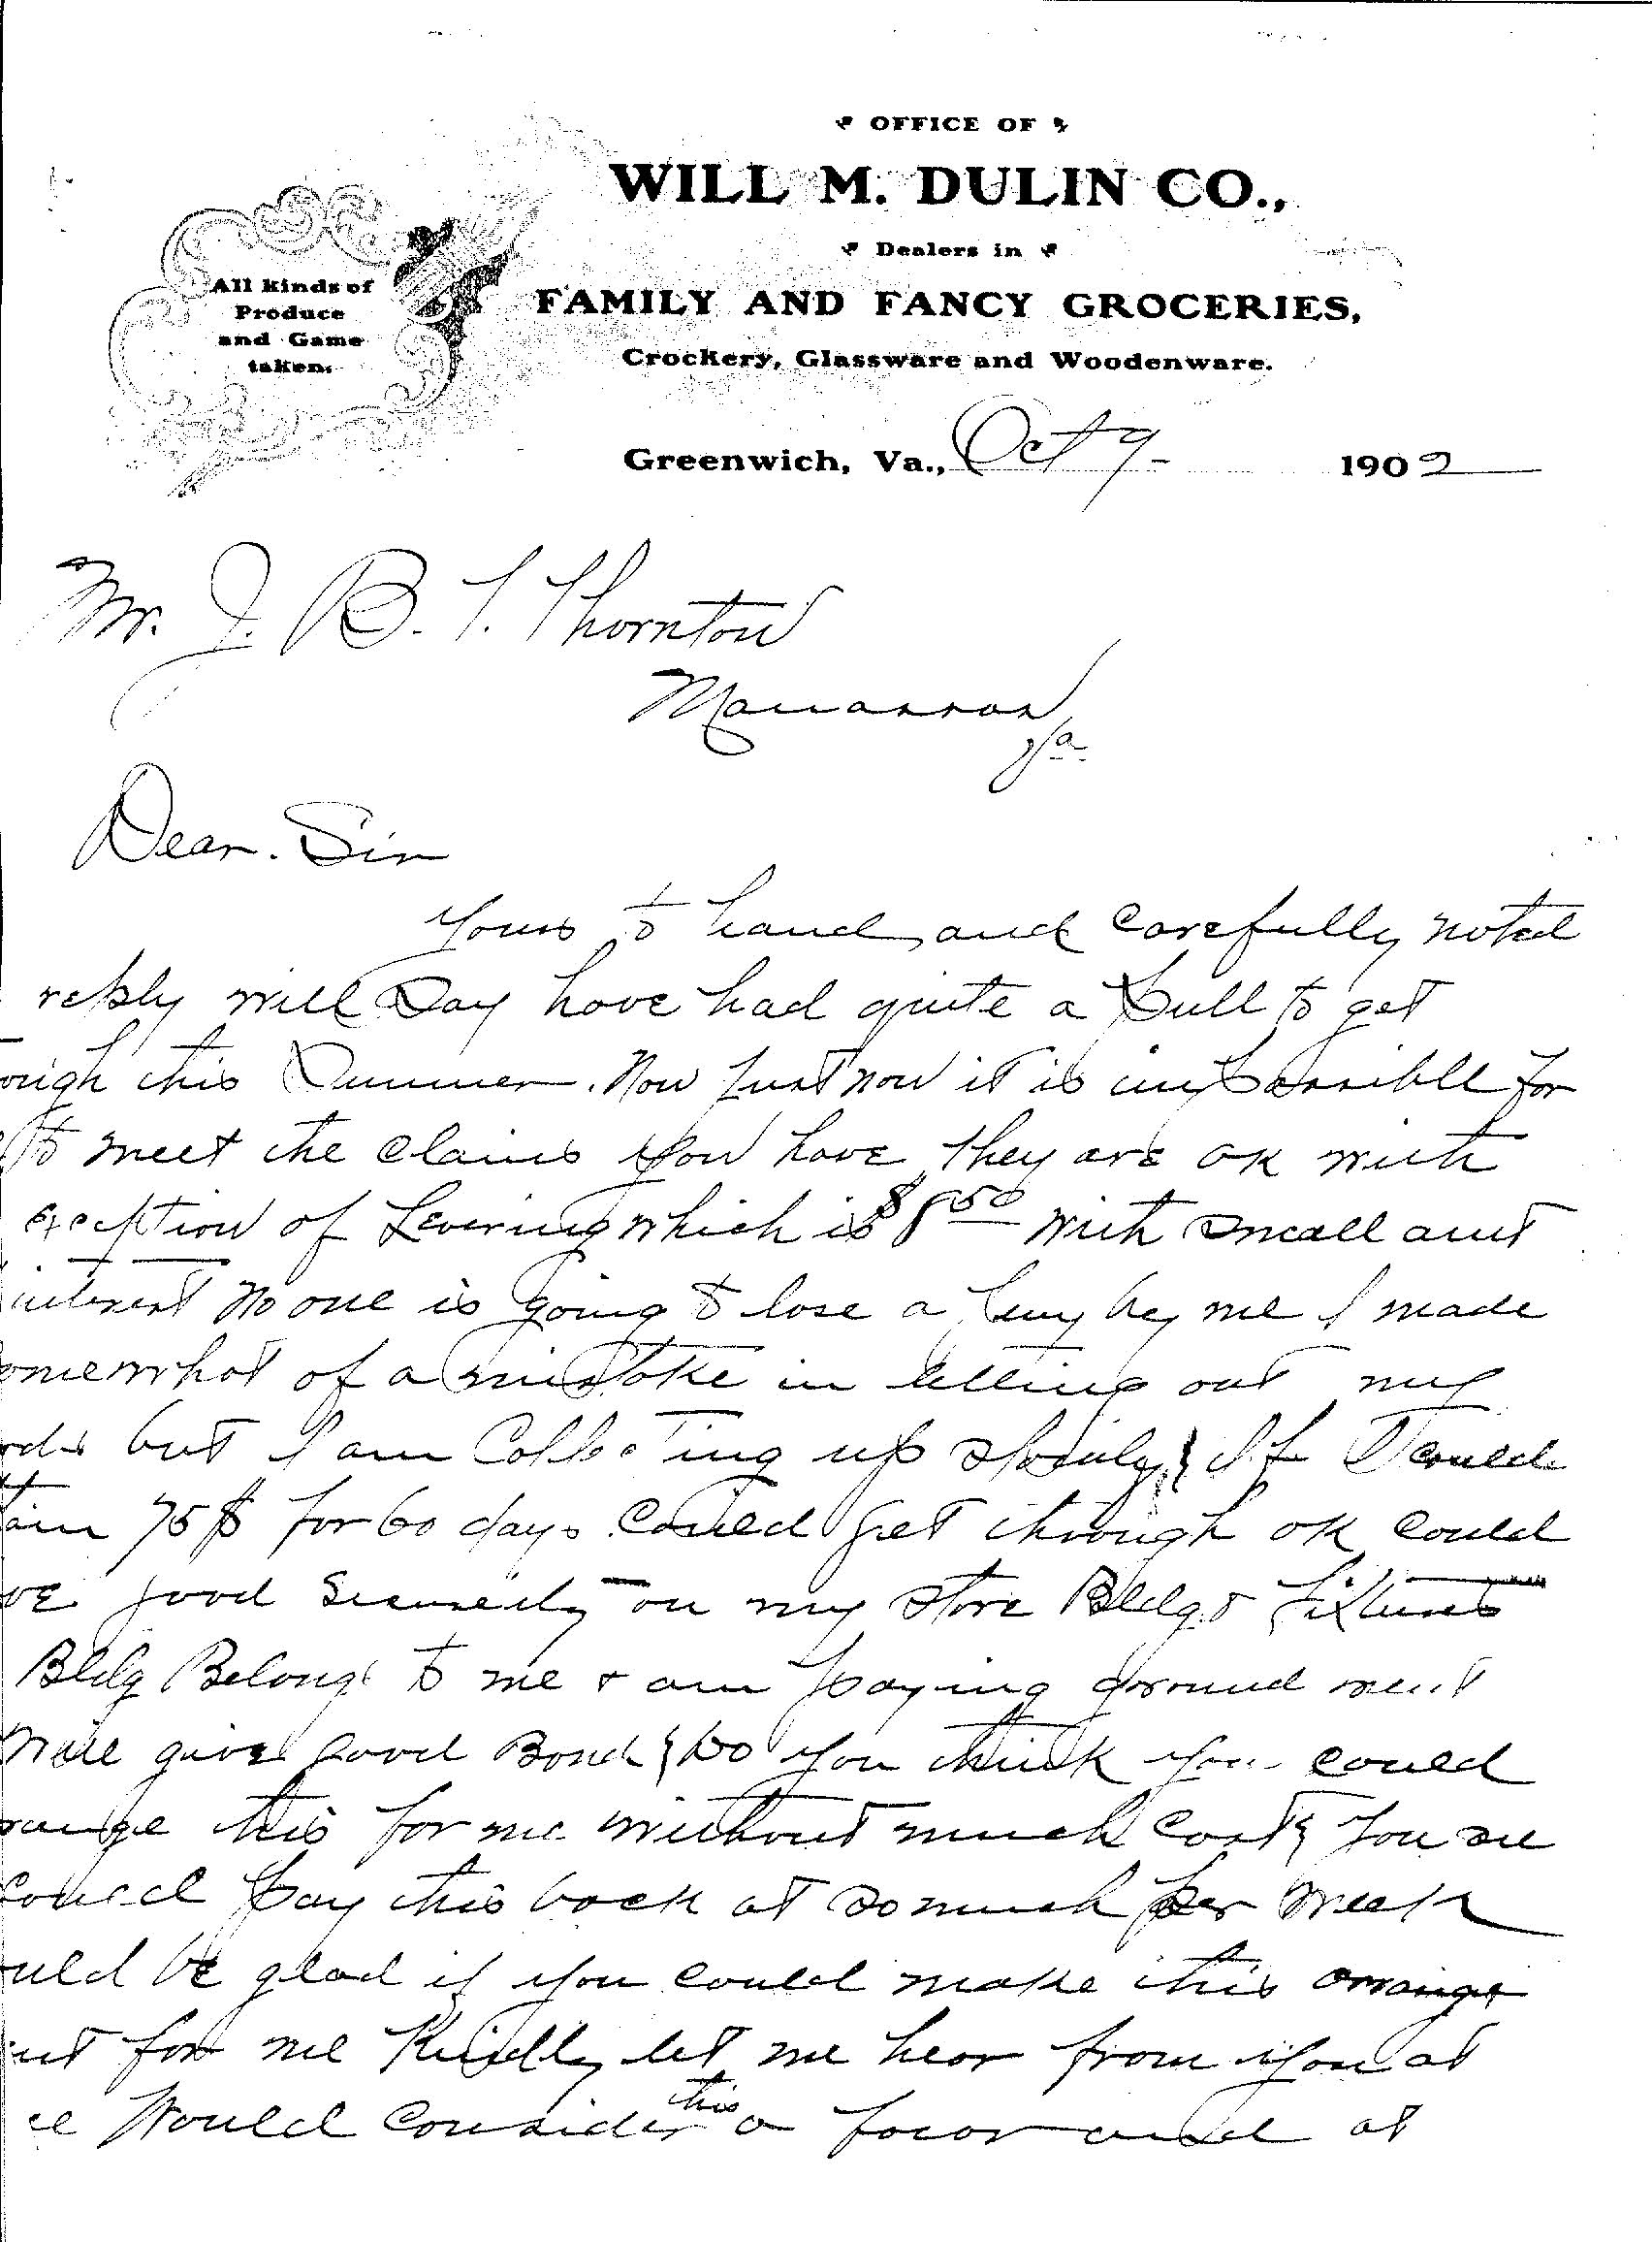 OFFICE OF
WILL M. DULIN CO.,
Dealers in
FAMILY AND FANCY GROCERIES,
Crockery, Glassware and Woodenware.
All kinds of
Produce
and Game
taken.
Greenwich, Va., Oct 9 1902
Mr. J. B. T. Thornton
Manassas
Va.
Dear. Sir
Yours to hand and carefully noted
reply will Say have had quite a pull to get
ough this Summer. Now Just now it is impossible for
to meet the claims you have they are OK with
exception of Levering which is $8 50 with small amt
interest No one is going to lose a by me I made
omewhat of a mistake in letting out my
but I am Collecting up If I could
ain 75$ for 60 days Could get through OK could
ve good Security on my store Bldg & fixtures
Bldg Belongs to me & am paying ground rent
Will give good Bond Do you think you could
range this for me without much Cost You see
Could pay this back at so much per week
uld be glad if you could make this arrange
nt for me Kindly let me hear from you at
ce Would Consider this a favor and at